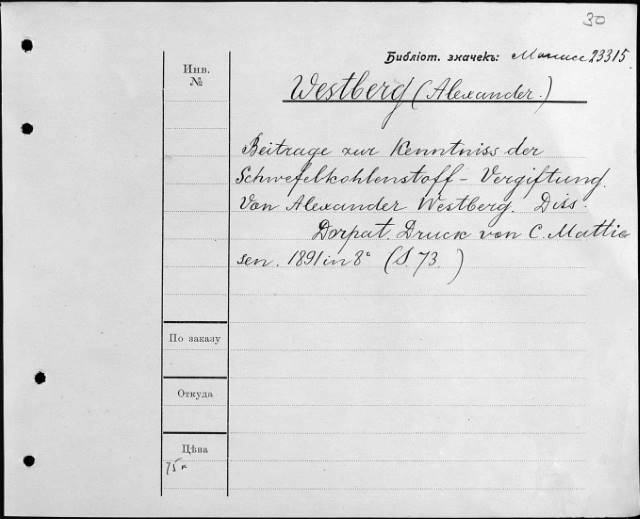 30
Библіот. значекъ: 23315.
Инв.
№
Westberg (Alexander.)
Beitrage zur Kenntniss der
Schwefelkohlenstoff - Vergiftung.
Von Alexander Westberg. Diss.
Dorpat. Druck von C. Mattie
sen. 1891 in 8° (S. 73.)
По заказу
Откуда
Цѣна
75к